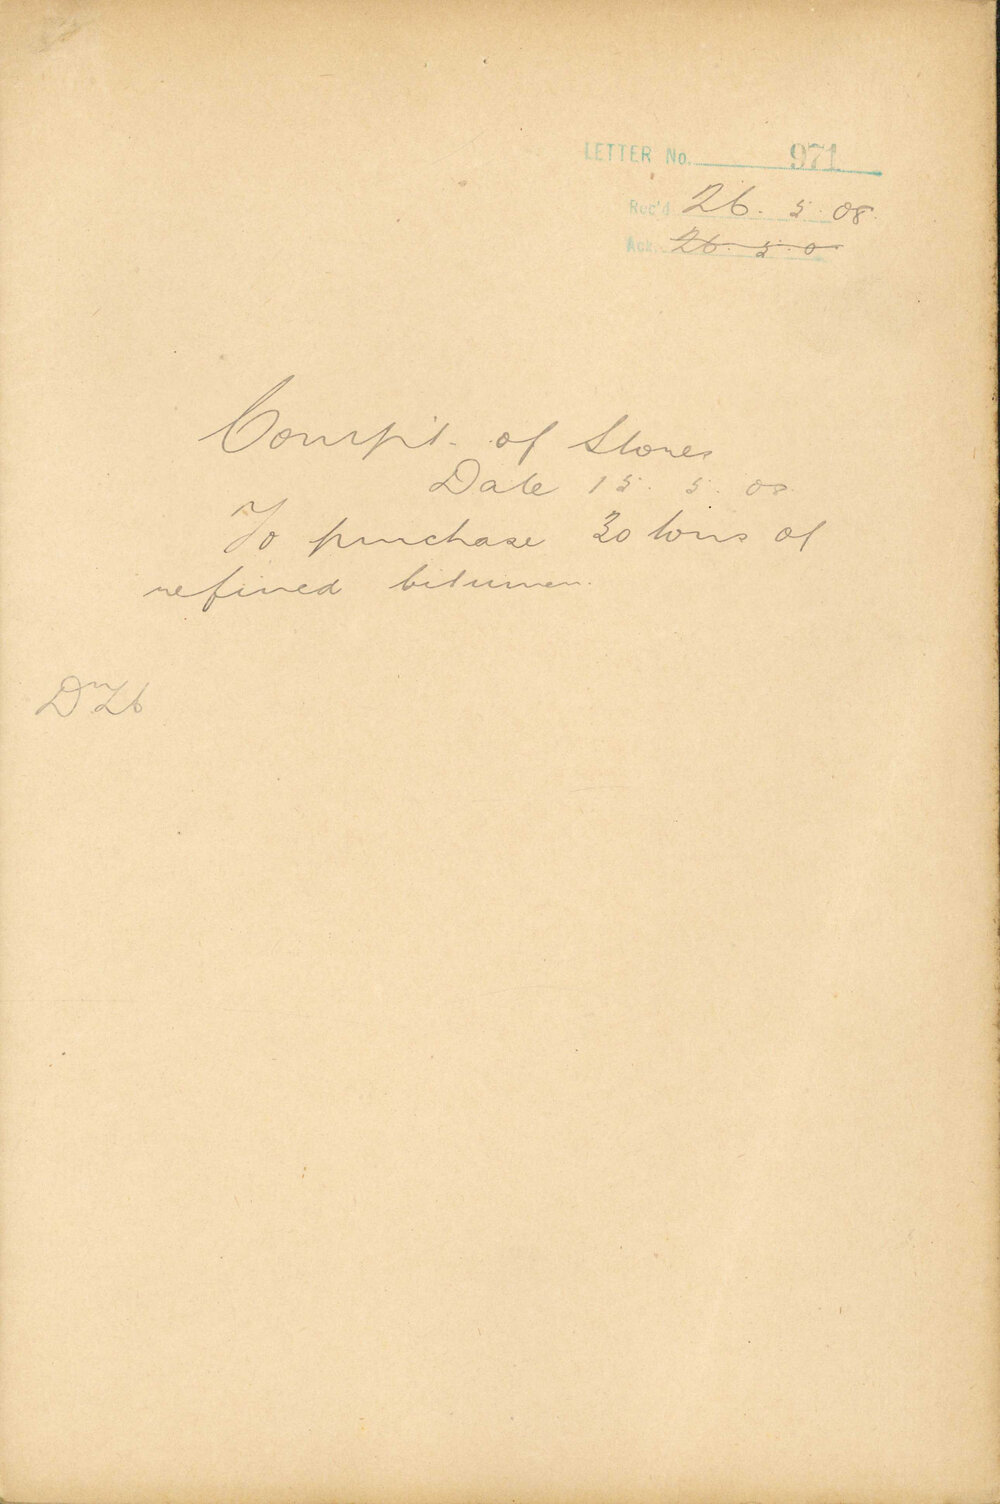 LETTER No. 971
Rec'd 26. 5. 08.
Ack. 26. 5. 0
Compt. of Stores
Date 15. 5. 08.
To purchase 30 tons of
refined bitumen.